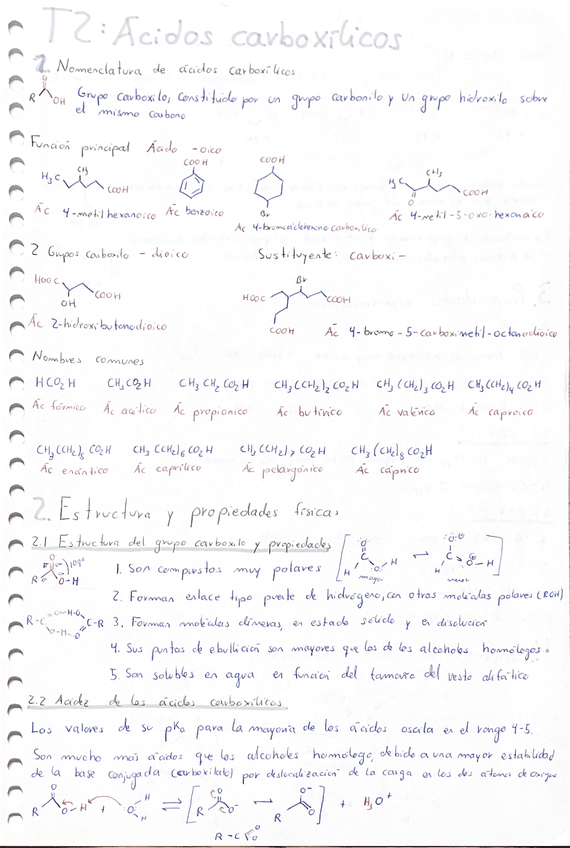 T2: Ácidos carboxílicos
1. Nomenclatura de ácidos carboxílicos
O
R OH
Grupo carboxilo, constituido por un grupo carbonilo y un grupo hidroxilo sobre
el mismo carbono
Función principal Ácido -oico
H3C CH3 COOH
COOH
COOH
Br
H3C O CH3 COOH
Ác 4-metilhexanoico
Ác benzoico
Ác 4-bromociclohexano carboxílico
Ác 4-metil-5-oxo-hexanoico
2 Grupos carboxilo -dioico
Sustituyente: carboxi-
HOOC OH COOH
HOOC Br COOH COOH
Ác 2-hidroxibutanodioico
Ác 4-bromo-5-carboximetil-octanodioico
Nombres comunes
HCO2H CH3CO2H CH3CH2CO2H CH3(CH2)2CO2H CH3(CH2)3CO2H CH3(CH2)4CO2H
Ác fórmico Ác acético Ác propionico Ác butírico Ác valérico Ác caproico
CH3(CH2)5CO2H CH3(CH2)6CO2H CH3(CH2)7CO2H CH3(CH2)8CO2H
Ác enántico Ác caprílico Ác pelargónico Ác cáprico
2. Estructura y propiedades físicas
2.1 Estructura del grupo carboxilo y propiedades
O
R O-H
1. Son compuestos muy polares
H C O H
mayor
H C O H
menor
2. Forman enlace tipo puente de hidrógeno, con otras moléculas polares (ROH)
R-C O H-O O-H O C-R
3. Forman moléculas dímeras, en estado sólido y en disolución
4. Sus puntos de ebullición son mayores que los de los alcoholes homólogos.
5. Son solubles en agua en función del tamaño del resto alifático
2.2 Acidez de los ácidos carboxílicos
Los valores de su pKa para la mayoría de los ácidos oscila en el rango 4-5.
Son mucho más ácidos que los alcoholes homólogo, debido a una mayor estabilidad
de la base conjugada (carboxilato) por deslocalización de la carga en los dos átomos de oxígeno
R O O-H + O H H ⇌ [ R O O- ↔ R O- O ] + H3O+
R-C O O